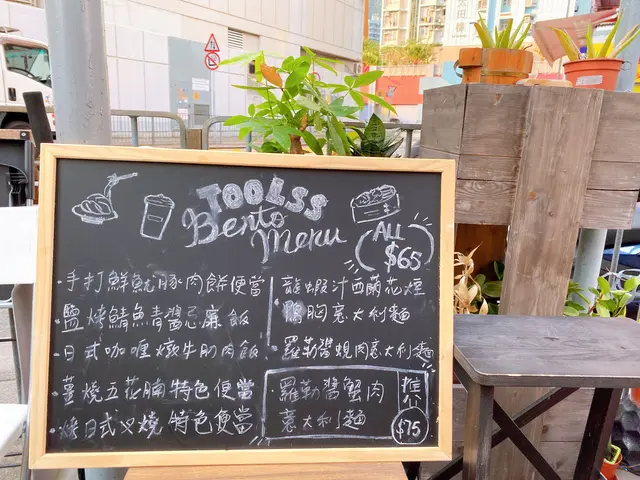 TOOLSS
Bento Menu
ALL $65
·手打鮮魷豚肉餅便當
·鹽烤鯖魚青醬忌廉飯
·日式咖喱燉牛肋肉飯
·薑燒五花腩特色便當
·烤日式叉燒特色便當
·龍蝦汁西蘭花煙
鴨胸意大利麵
·羅勒醬蜆肉意大利麵
·羅勒醬蟹肉
意大利麵
推介
$75